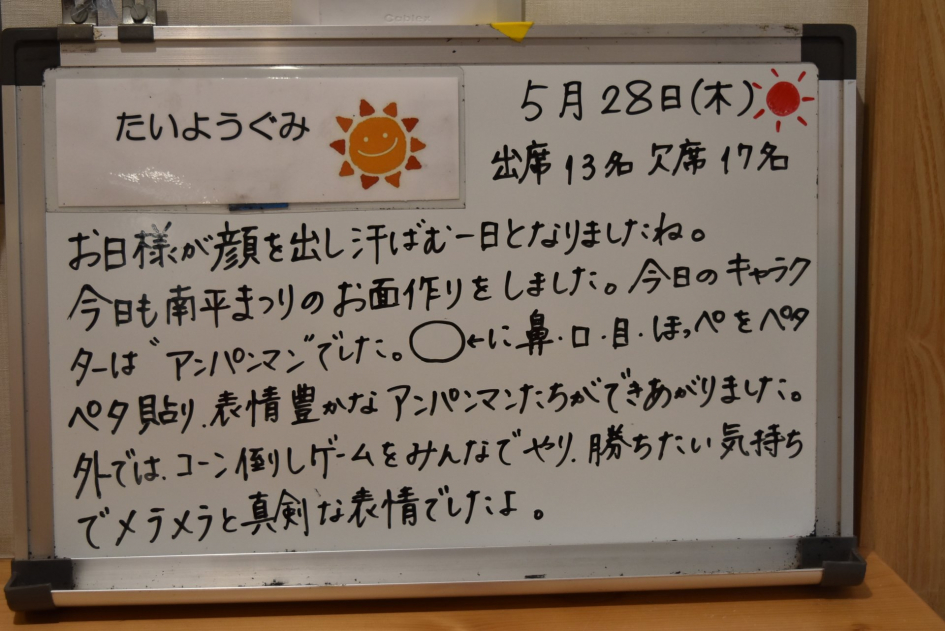 たいようぐみ
5月28日(木)
出席13名 欠席17名
お日様が顔を出し汗ばむ一日となりましたね。
今日も南平まつりのお面作りをしました。今日のキャラク
ターは〝アンパンマン〞でした。◯←に鼻・口・目・ほっぺをペタ
ペタ貼り、表情豊かなアンパンマンたちができあがりました。
外では、コーン倒しゲームをみんなでやり、勝ちたい気持ち
でメラメラと真剣な表情でしたよ。